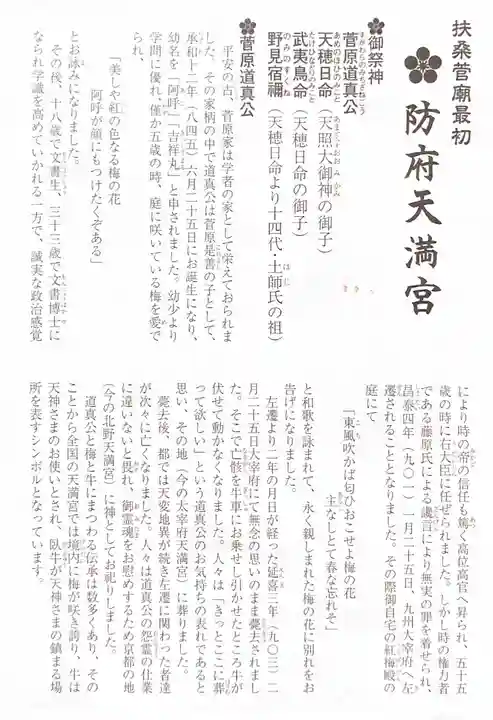 扶桑菅廟最初
防府天満宮
御祭神
菅原道真公
天穂日命（天照大御神の御子）
武夷鳥命（天穂日命の御子）
野見宿禰（天穂日命より十四代・土師氏の祖）
菅原道真公
平安の古、菅原家は学者の家として栄えておられま
した。その家柄の中で道真公は菅原是善の子として、
承和十二年（八四五）六月二十五日にお誕生になり、
幼名を「阿呼」「吉祥丸」と申されました。幼少より
学問に優れ、僅か五歳の時、庭に咲いている梅を愛で
られ、
「美しや紅の色なる梅の花
阿呼が顔にもつけたくぞある」
とお詠みになりました。
その後、十八歳で文書生、三十三歳で文書博士に
なられ学識を高めていかれる一方で、誠実な政治感覚
により時の帝の信任も篤く高位高官へ昇られ、五十五
歳の時に右大臣に任ぜられました。しかし時の権力者
である藤原氏による讒言により無実の罪を着せられ、
昌泰四年（九〇一）一月二十五日、九州大宰府へ左
遷されることとなりました。その際御自宅の紅梅殿の
庭にて
「東風吹かば匂ひおこせよ梅の花
主なしとて春な忘れそ」
と和歌を詠まれて、永く親しまれた梅の花に別れをお
告げになりました。
左遷より二年の月日が経った延喜三年（九〇三）二
月二十五日大宰府にて無念の思いのまま薨去されまし
た。そこで亡骸を牛車にお乗せし引かせたところ牛が
伏せて動かなくなりました。人々は「きっとここに葬
って欲しい」という道真公のお気持ちの表れであると
思い、その地（今の太宰府天満宮）に葬りました。
薨去後、都では天変地異が続き左遷に関わった者達
が次々に亡くなりました。人々は道真公の怨霊の仕業
に違いないと畏れ、御霊魂をお慰めするため京都の地
（今の北野天満宮）に神としてお祀りしました。
道真公と梅と牛にまつわる伝承は数多くあり、その
ことから全国の天満宮では境内に梅が咲き誇り、牛は
天神さまのお使いとされ、臥牛が天神さまの鎮まる場
所を表すシンボルとなっています。